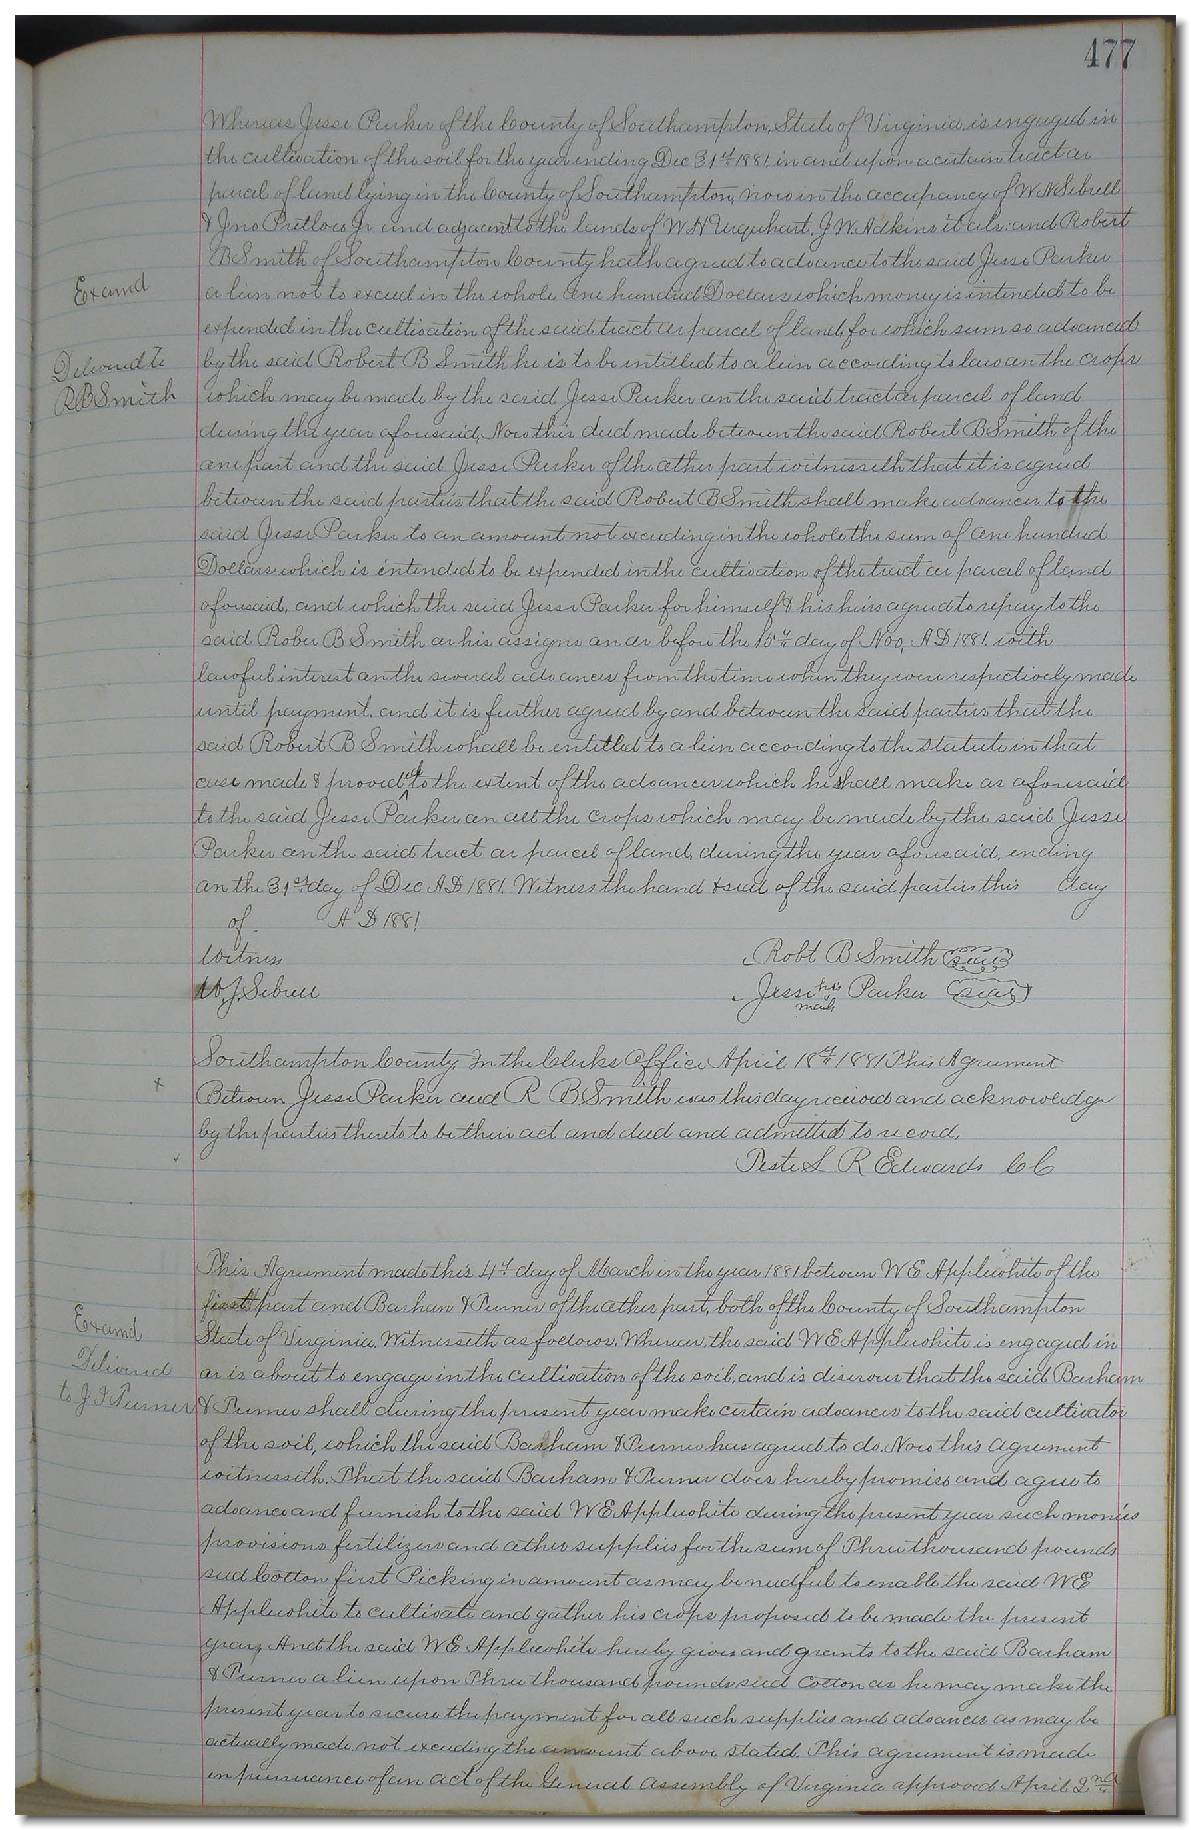 477
Whereas Jesse Parker of the County of Southampton, State of Virginia is engaged in
the cultivation of the soil for the year ending Dec 31st 1881 in and upon a certain tract or
parcel of land lying in the County of Southampton, now in the occupancy of W. N. Sebrell
& Jno Pretlow Jr and adjacent to the lands of W H Urquhart, J W Adkins et als. and Robert
B Smith of Southampton County hath agreed to advance to the said Jesse Parker
Examd
a lien not to exceed in the whole One hundred Dollars which money is intended to be
expended in the cultivation of the said tract or parcel of land for which sum so advanced
Delivered to
by the said Robert B Smith he is to be intitled to a lien according to law on the crops
R B Smith
which may be made by the said Jesse Parker on the said tract or parcel of land
during the year aforesaid. Now this deed made between the said Robert B Smith of the
one part and the said Jesse Parker of the other part witnesseth that it is agreed
between the said parties that the said Robert B Smith shall make advances to the
said Jesse Parker to an amount not exceeding in the whole the sum of One hundred
Dollars which is intended to be expended in the cultivation of the tract or parcel of land
aforesaid, and which the said Jesse Parker for himself & his heirs agreed to repay to the
said Rober B Smith or his assigns on or before the 15th day of Nov, A D 1881. with
lawful interest on the several advances from the time when they were respectively made
until payment. and it is further agreed by and between the said parties that the
said Robert B Smith shall be entitled to a lien according to the statute in that
case made & provided to the extent of the advances which he shall make as aforesaid
to the said Jesse Parker on all the crops which may be made by the said Jesse
Parker on the said tract or parcel of land, during the year aforesaid, ending
on the 31st day of Dec A D 1881. Witness the hand & seal of the said parties this day
of A D 1881
Witness Robt B Smith seal
W, J, Sebrell Jesse his Parker seal
mark
Southampton County In the Clerks Office April 18th 1881 This Agreement
x
Between Jesse Parker and R B Smith was this day received and acknowledge
by the parties thereto to be their act and deed and admitted to record.
Teste L R Edwards C C
This Agreement made this 4th day of March in the year 1881 between W E Applewhite of the
first part and Barham & Purner of the other part, both of the County of Southampton
Examd
State of Virginia. Witnesseth as follows. Whereas, the said W E Applewhite is engaged in
Delivered
or is about to engage in the cultivation of the soil, and is desirous that the said Barham
to J. F. Purner
& Purner shall during the present year make certain advances to the said cultivator
of the soil, which the said Barham & Purner has agreed to do. Now this agreement
witnesseth. That the said Barham & Purner does hereby promise and agree to
advance and furnish to the said W E Applewhite during the present year such monies
provisions fertilizers and other supplies for the sum of Three thousand pounds
seed Cotton first Picking in amount as may be needful to enable the said W E
Applewhite to cultivate and gather his crops proposed to be made the present
year, And the said W E Applewhite hereby gives and grants to the said Barham
& Purner a lien upon Three thousand pounds seed Cotton as he may make the
present year to secure the payment for all such supplies and advances as may be
actually made not exceeding the amount above stated This agreement is made
in pursuance of an act of the General Assembly of Virginia approved April 2nd